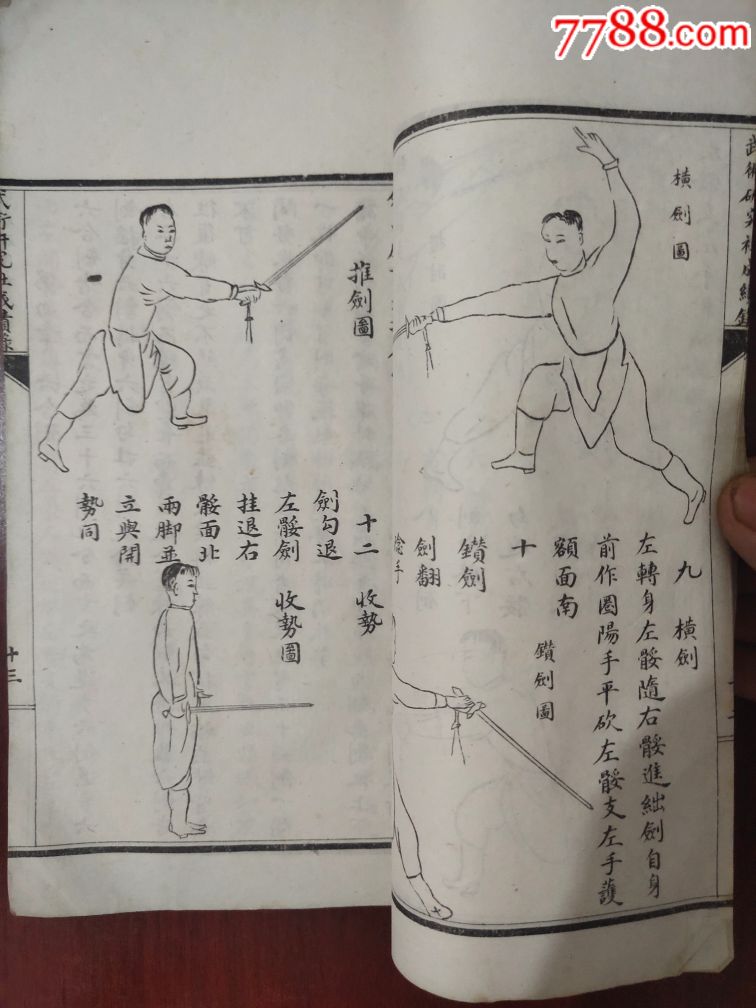 7788.com
武術研究社成績錄
橫劍圖
九 橫劍
左轉身左骽隨右骽進絀劍自身
前作圈陽手平砍左骽支左手護
額面南
鑽劍圖
十
鑽劍
劍翻
推劍圖
十二 收勢
劍勾退
左骽劍
挂退右
骽面北
兩脚並
立與開
勢同
收勢圖
武術研究社成績錄
十三